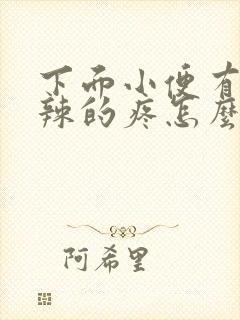 下而小便有
辣的疼怎麼
阿希里